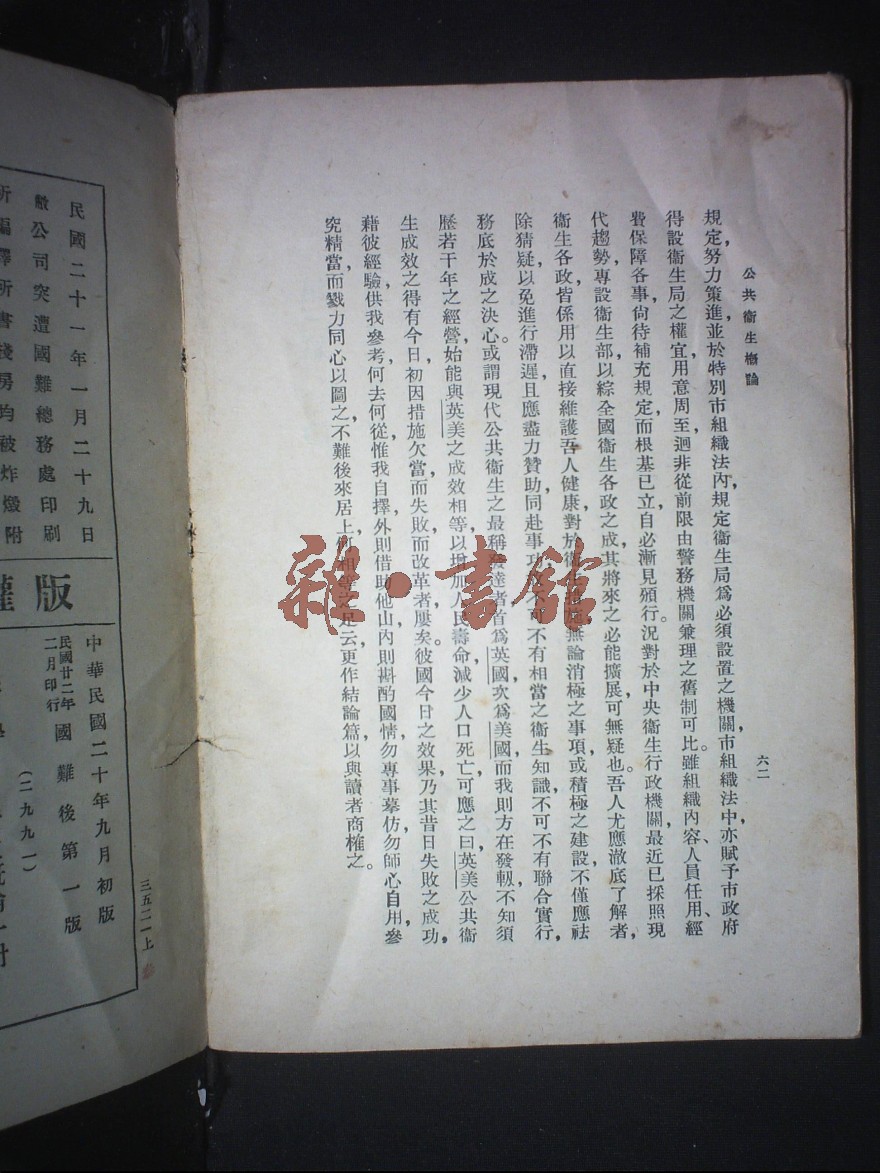 公共衞生槪論
六二
規定，努力策進，並於特別市組織法內，規定衞生局爲必須設置之機關，市組織法中亦賦予市政府
得設衞生局之權，宜用意周至，迥非從前限由警務機關兼理之舊制可比。雖組織內容、人員任用、經
費保障各事，尙待補充規定，而根基已立，自必漸見頒行。況對於中央衞生行政機關，最近已採照現
代趨勢，專設衞生部，以綜全國衞生各政之成，其將來之必能擴展，可無疑也。吾人尤應澈底了解者，
衞生各政，皆係用以直接維護吾人健康，對於衞生設施，無論消極之事項，或積極之建設，不僅應祛
除猜疑，以免進行滯遲，且應盡力贊助，同赴事功，故不可不有相當之衞生知識，不可不有聯合實行，
務底於成之決心。或謂現代公共衞生之最稱發達者，首爲英國，次爲美國，而我則方在發軔，不知須
歷若干年之經營，始能與英美之成效相等，以增加人民壽命，減少人口死亡，可應之曰，英美公共衞
生成效之得有今日，初因措施欠當而失敗而改革者屢矣。彼國今日之效果，乃其昔日失敗之成功，
藉彼經驗，供我參考，何去何從，惟我自擇，外則借助他山，內則斟酌國情，勿專事摹仿，勿師心自用，參
究精當，而戮力同心以圖之，不難後來居上，何相等之足云，更作結論篇，以與讀者商榷之。
雜·書館
民國二十一年一月二十九日
敝公司突遭國難總務處印刷
所編譯所書棧房均被炸燬附
版權
中華民國二十年九月初版
民國廿二年二月印行
國難後第一版
(二九九一)
三五二一上